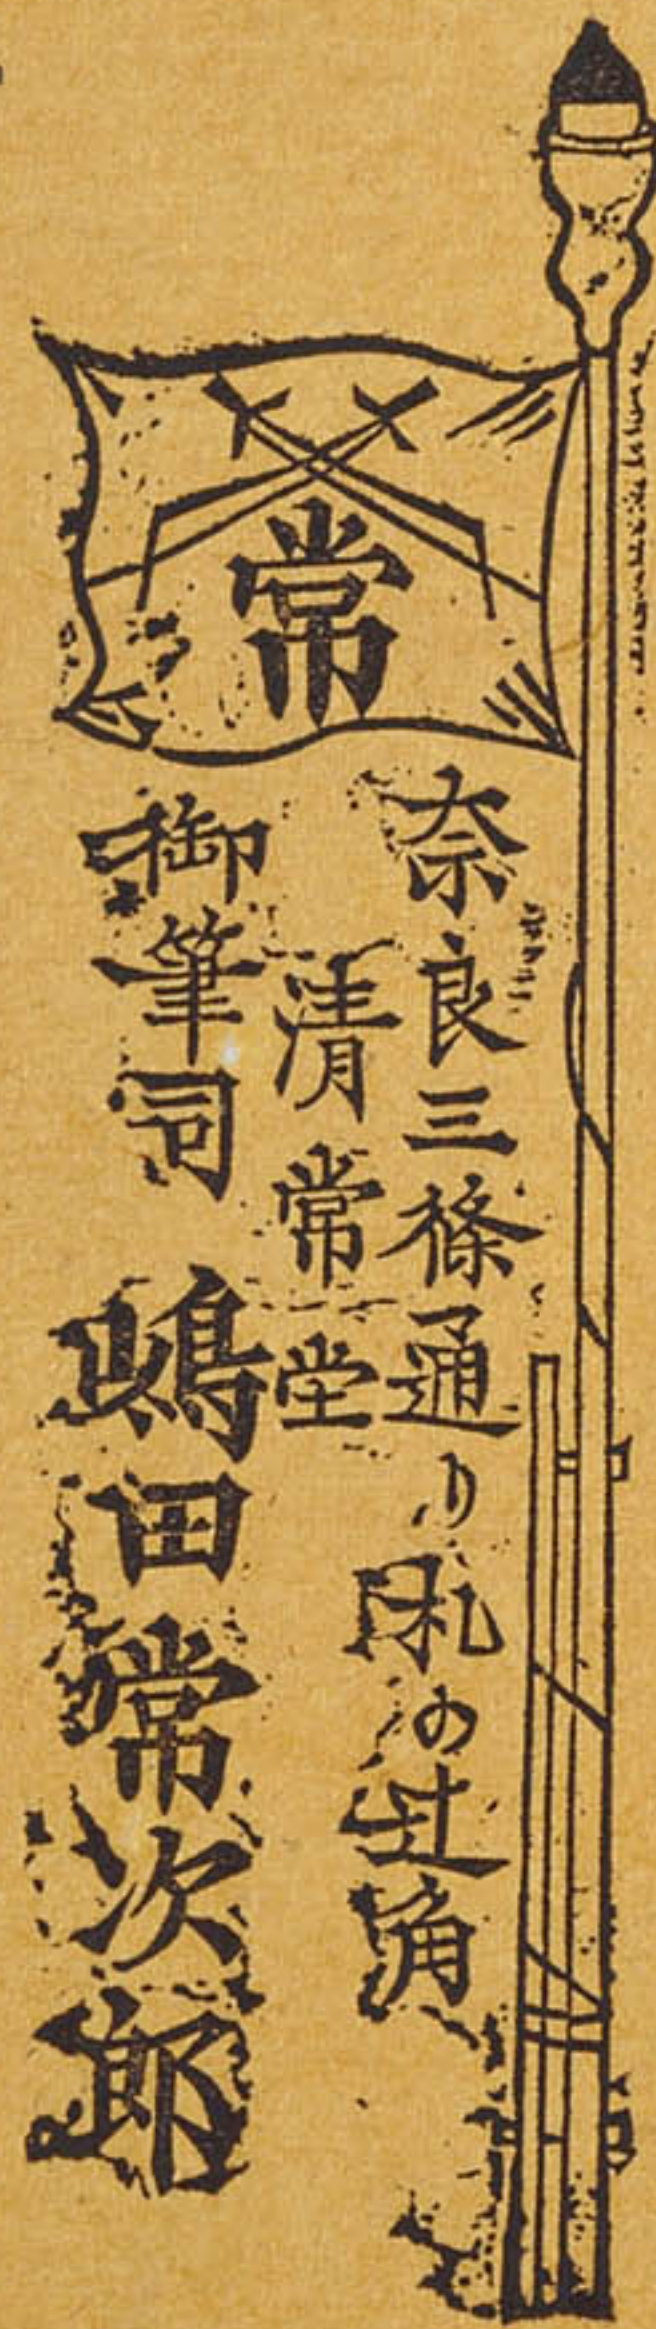 常
奈良三條通り札の辻角
清常堂
御筆司 嶋田常次郎